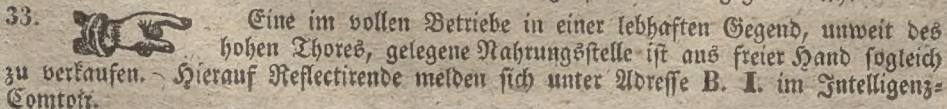 33. Eine im vollen Betriebe in einer lebhaften Gegend, unweit des
hohen Thores, gelegene Nahrungsstelle ist aus freier Hand sogleich
zu verkaufen. Hierauf Reflectirende melden sich unter Adresse B. I. im Intelligenz-
Comtoir.